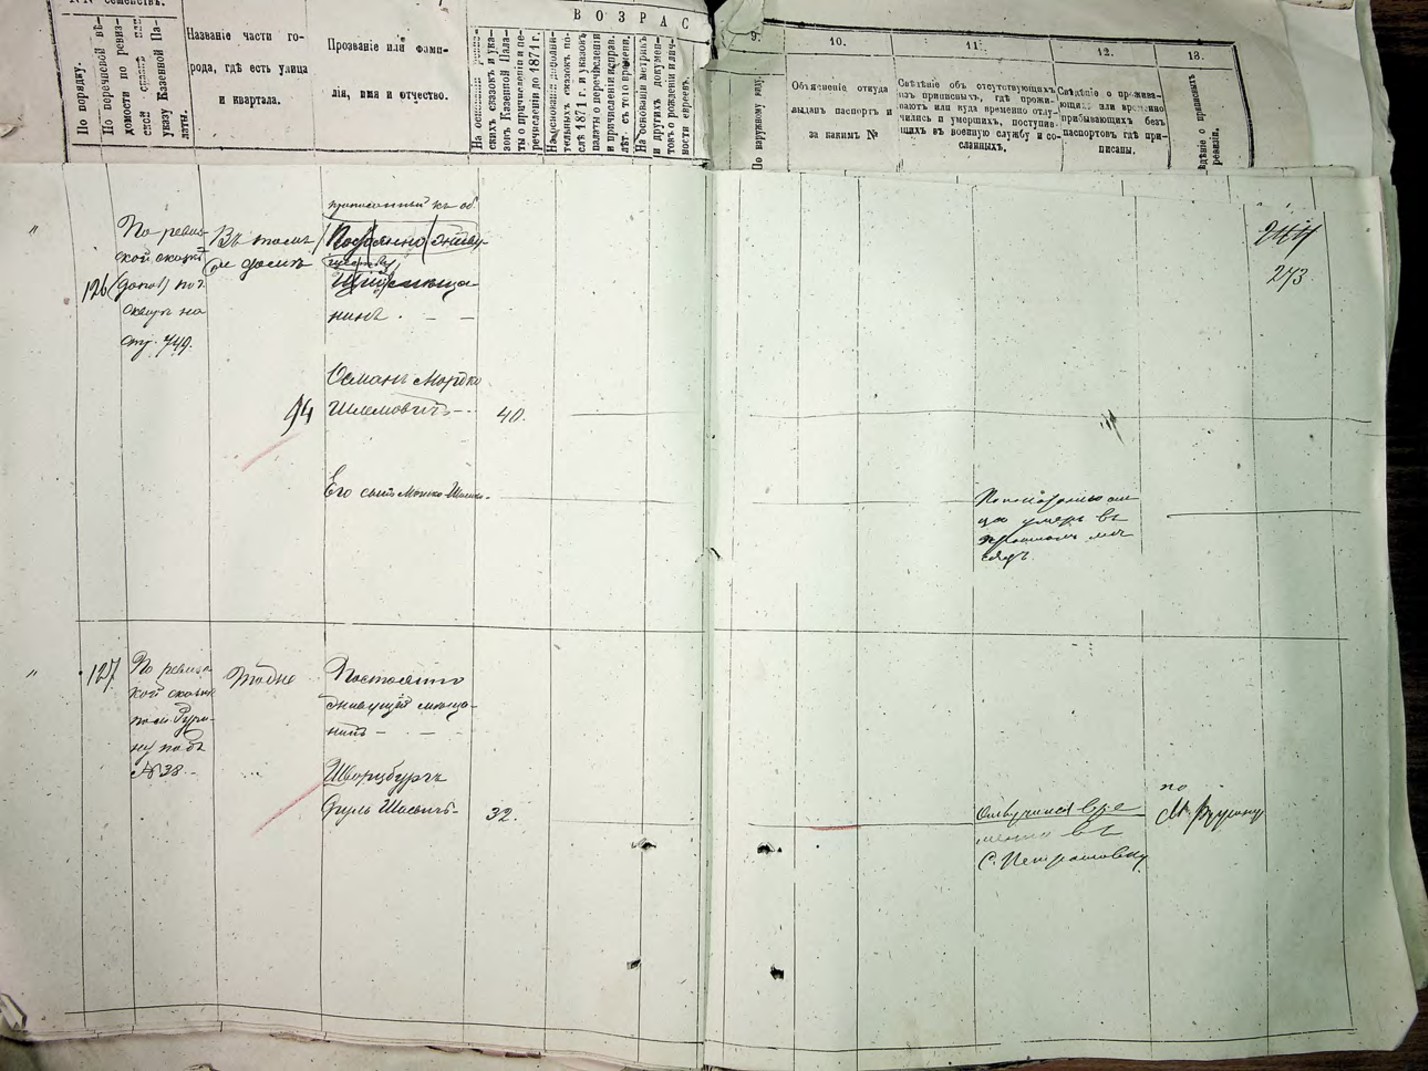 №№ семействъ.
По порядку.
По перечневой вѣ-
домости по ревиз-
ской сказкѣ или
указу Казенной Па-
латы.
Названіе части го-
рода, гдѣ есть улица
и квартала.
Прозваніе или фами-
лія, имя и отчество.
ВОЗРАС
На основаніи ревиз-
скихъ сказокъ и ука-
зовъ Казенной Пала-
ты о причисленіи и пе-
речисленіи до 1871 г.
На основаніи дополни-
тельныхъ сказокъ по-
слѣ 1871 г. и указовъ
палаты о перечисленіи
и причисленіи исправ.
лѣт. съ того времени.
На основаніи метрикъ
и другихъ докумен-
товъ о рожденіи и лич-
ности евреевъ.
9.
По наружному виду.
10.
Объясненіе откуда
выданъ паспортъ и
за какимъ №
11.
Свѣдѣніе объ отсутствующихъ
изъ приписныхъ, гдѣ прожи-
ваютъ или куда временно отлу-
чились и умершихъ, поступив-
щихъ въ военную службу и со-
сланныхъ.
12.
Свѣдѣніе о прожива-
ющихъ или временно
прибывающихъ безъ
паспортовъ гдѣ при-
писаны.
13.
ѣдѣніе о приписныхъ
ревизіи.
"
126
По ревиз-
ской сказкѣ
(допол)
на
стр. 749.
Въ томъ
же домѣ
приписанный къ об
Постоянно живу
щій
мѣща
нинъ
Османъ Мордко
94
Шлемовичъ
40.
Его сынъ Мошко
По показанію от
ца умеръ въ
прошломъ мѣ
сяцѣ.
244
273
"
127
По ревиз
кой сказкѣ
подъ
№ 38.
Тоже
Постоянно
живущій мѣща-
нинъ
Шварцбургъ
Сруль
32.
Отлучился вре
менно въ
С. Петрашовку
по
М.